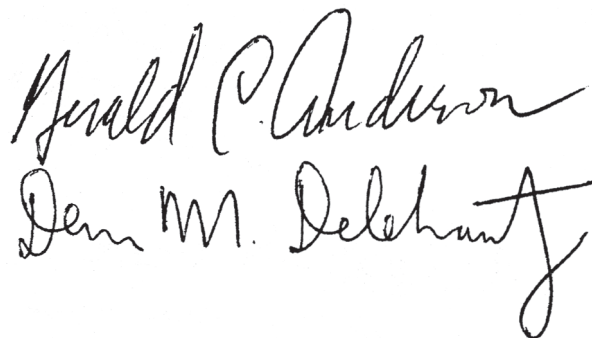 Gerald C. Anderson
Dean M. Delehanty